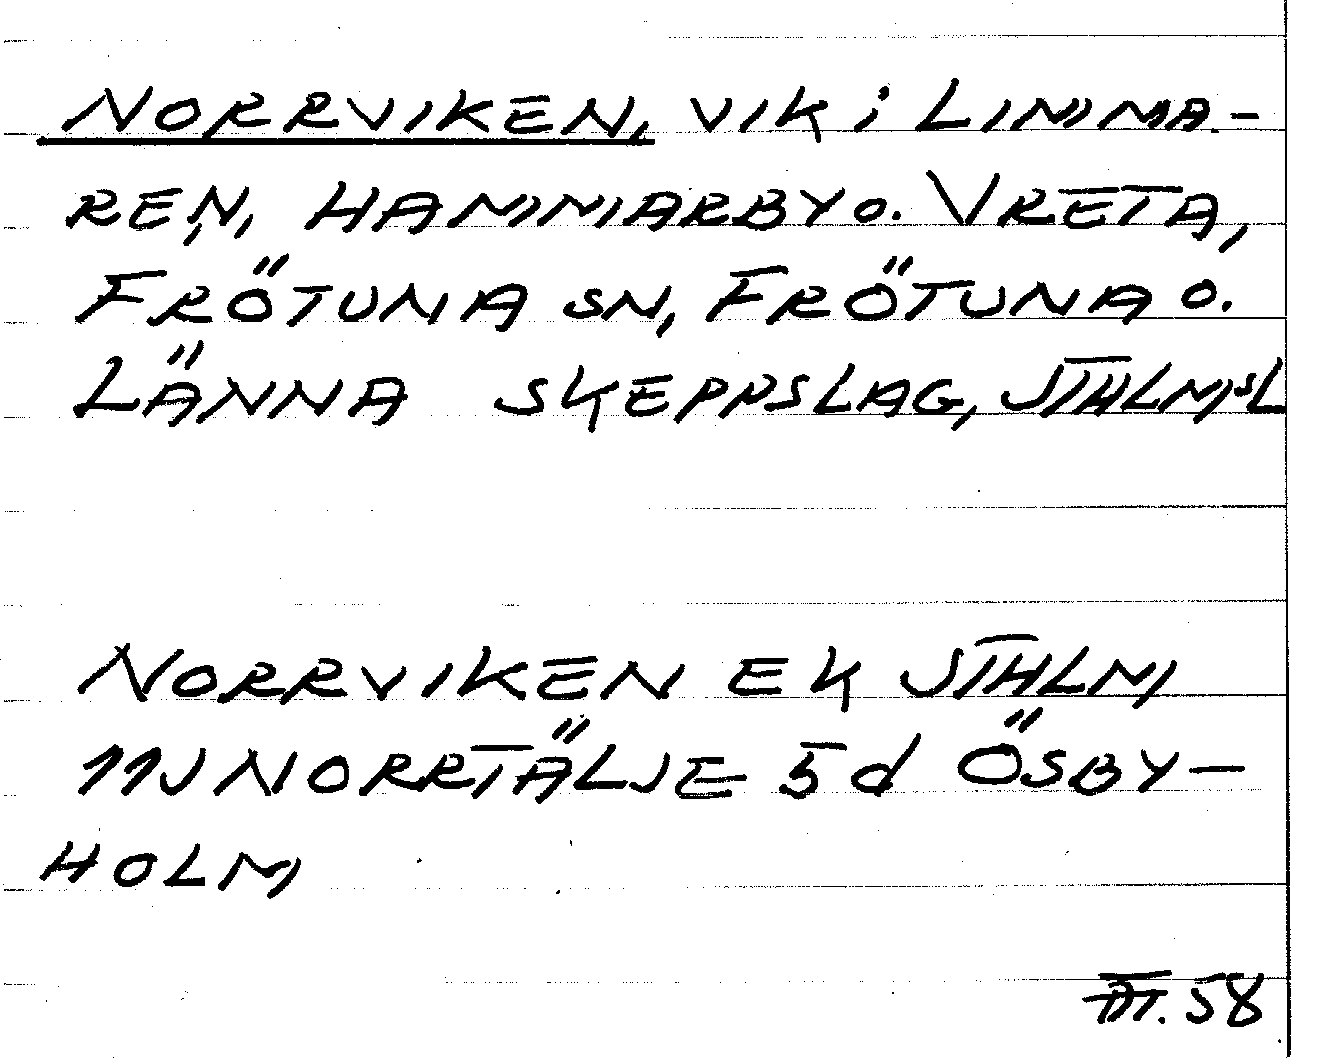 NORRVIKEN, VIK i LIMMA-
REN, HAMMARBY o. VRETA,
FRÖTUNA SN, FRÖTUNA o.
LÄNNA SKEPPSLAG, STHLMSL
NORRVIKEN EK STHLM
11J NORRTÄLJE 5d ÖSBY-
HOLM
58